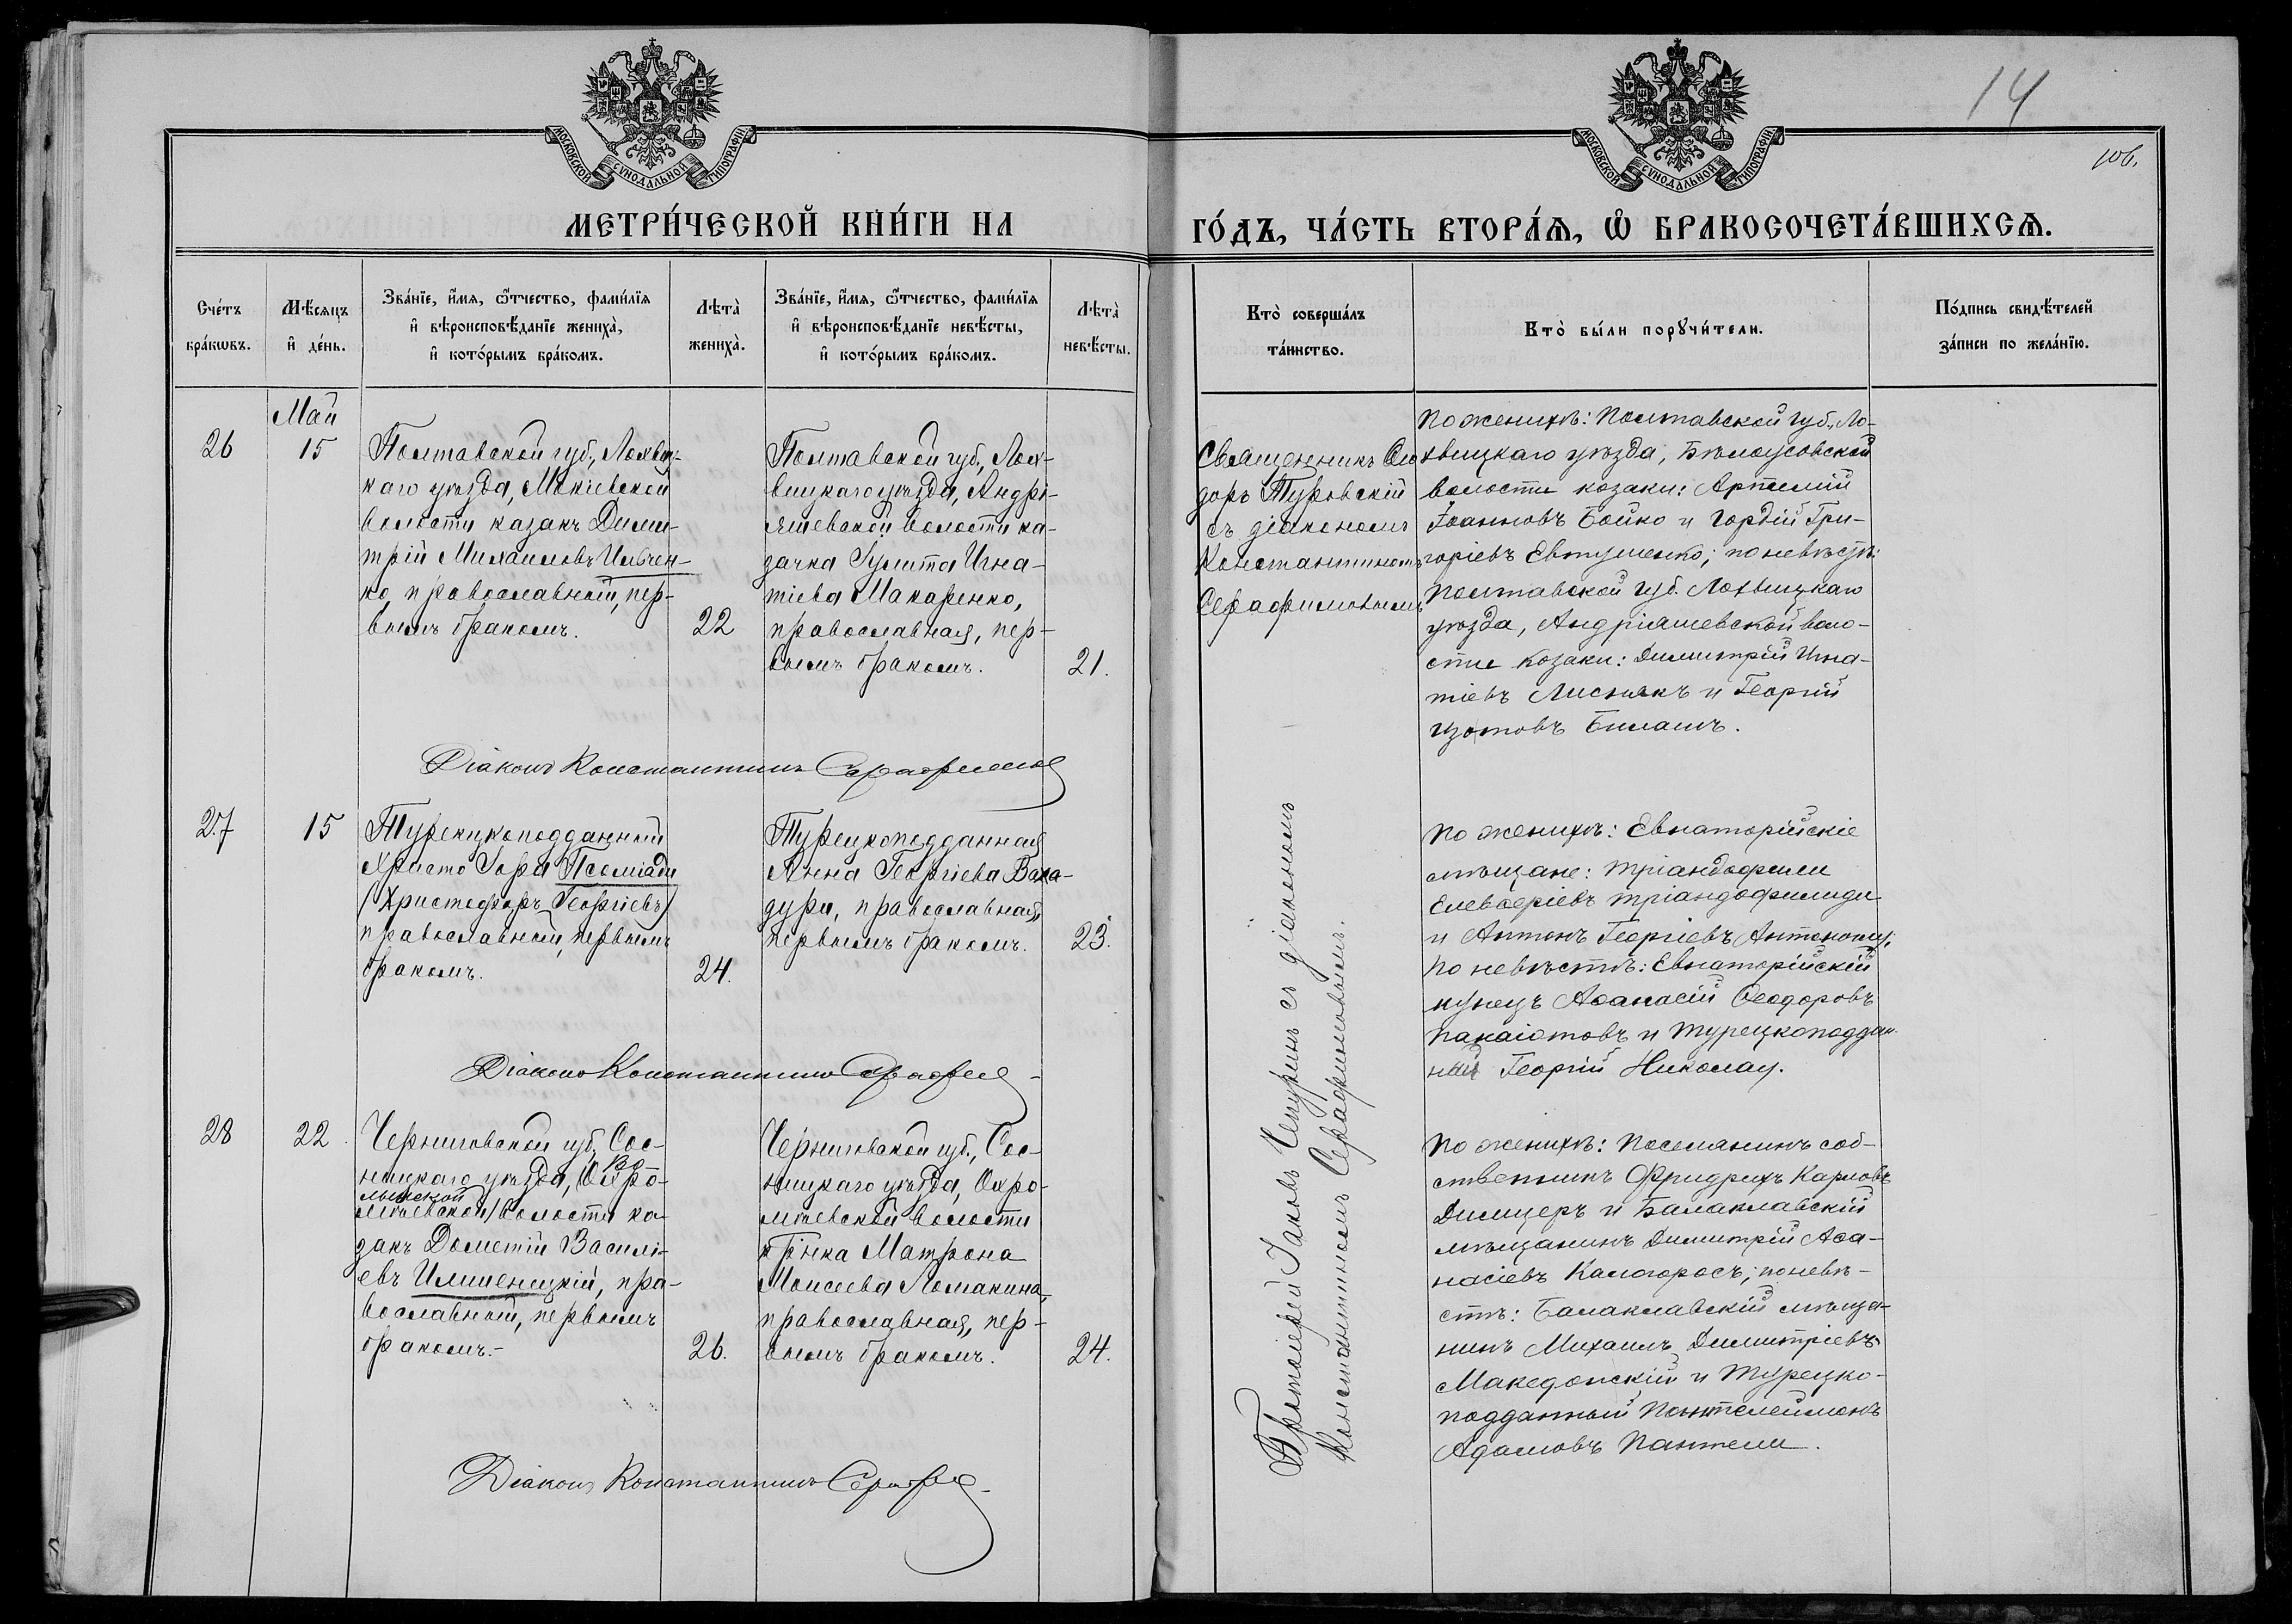 14
106.
МОСКОВСКОЙ СУНОДАЛЬНОЙ ТИПОГРАФІИ
МОСКОВСКОЙ СУНОДАЛЬНОЙ ТИПОГРАФІИ
МЕТРИ́ЧЕСКОЙ КНИ́ГИ НА
ГО́ДЪ, ЧА́СТЬ ВТОРА́Ѧ, Ѽ БРАКОСОЧЕТА́ВШИХСѦ.
Сче́тъ
бра́кѡвъ.
Мѣ́сяцъ
и҆ де́нь.
Зва́нїе, и҆́мѧ, ѻ҆́тчество, фами́лїѧ
и҆ вѣроисповѣ́данїе жениха̀,
и҆ кото́рымъ бра́комъ.
Лѣта̀
жениха̀.
Зва́нїе, и҆́мѧ, ѻ҆́тчество, фами́лїѧ
и҆ вѣроисповѣ́данїе невѣ́сты,
и҆ кото́рымъ бра́комъ.
Лѣта̀
невѣ́сты.
Кто̀ соверша́лъ
та́инство.
Кто̀ бы́ли порꙋчи́тели.
По́дпись свидѣ́телей
за́писи по жела́нїю.
Май
26
15
Полтавской губ., Лохвиц-
каго уѣзда, Мокіевской
волости казакъ Дими-
трій Михаиловъ Ильчен-
ко, православный, пер-
вымъ бракомъ.
22
Полтавской губ., Лох-
вицкаго уѣзда, Андрі-
яшевской волости ка-
зачка Іулитта Игна-
тіева Макаренко,
православная, пер-
вымъ бракомъ.
21.
Священникъ Ѳео
доръ Туровскій
съ діакономъ
Константиномъ
Серафимовымъ
По женихѣ: Полтавской губ., Ло-
хвицкаго уѣзда, Бѣлоусовской
волости козаки: Артемій
Іоанновъ Бойко и Гордій Гри-
горіевъ Евтушенко; по невѣстѣ:
Полтавской губ. Лохвицкаго
уѣзда, Андріяшевской воло-
сти козаки: Димитрій Игна-
тіевъ Лиснякъ и Георгій
Изотовъ Билашъ.
Діаконъ Константинъ Серафимовъ
27
15
Турецкоподданный
Христо Іоры Псоміади
(Христофоръ Георгіевъ)
православный, первымъ
бракомъ.
24.
Турецкоподданная
Анна Георгіева Баха-
дури, православная,
первымъ бракомъ.
23.
Протоіерей Іаковъ Чепуринъ съ діакономъ
Константиномъ Серафимовымъ.
По женихѣ: Евпаторійскіе
мѣщане: Тріандофили
Елевѳеріевъ Тріандофилиди
и Антонъ Георгіевъ Антонопу;
по невѣстѣ: Евпаторійскій
купецъ Аѳанасій Ѳеодоровъ
Панаіотовъ и Турецкоподдан-
ный Георгій Николау.
Діаконъ Константинъ Серафим
28
22
Черниговской губ., Сос-
ницкаго уѣзда, (Охро-
мѣевской) волости ка-
закъ Дометій Василі-
евъ Илшенецкій, пра-
вославный, первымъ
бракомъ.-
26.
Черниговской губ., Сос-
ницкаго уѣзда, Охро-
мѣевской волости
Матрона
Моисеева Ломакина,
православная, пер-
вымъ бракомъ.
24.
По женихѣ: Поселянинъ соб-
ственникъ Фридрихъ Карловъ
Димцеръ и Балаклавскій
мѣщанинъ Димитрій Аѳа-
насіевъ Калогоросъ; по невѣ-
стѣ: Балаклавскій мѣща-
нинъ Михаилъ Димитріевъ
Македонскій и Турецко-
подданный Пантелеймонъ
Адамовъ Пантели.
Діаконъ Константинъ Сераф